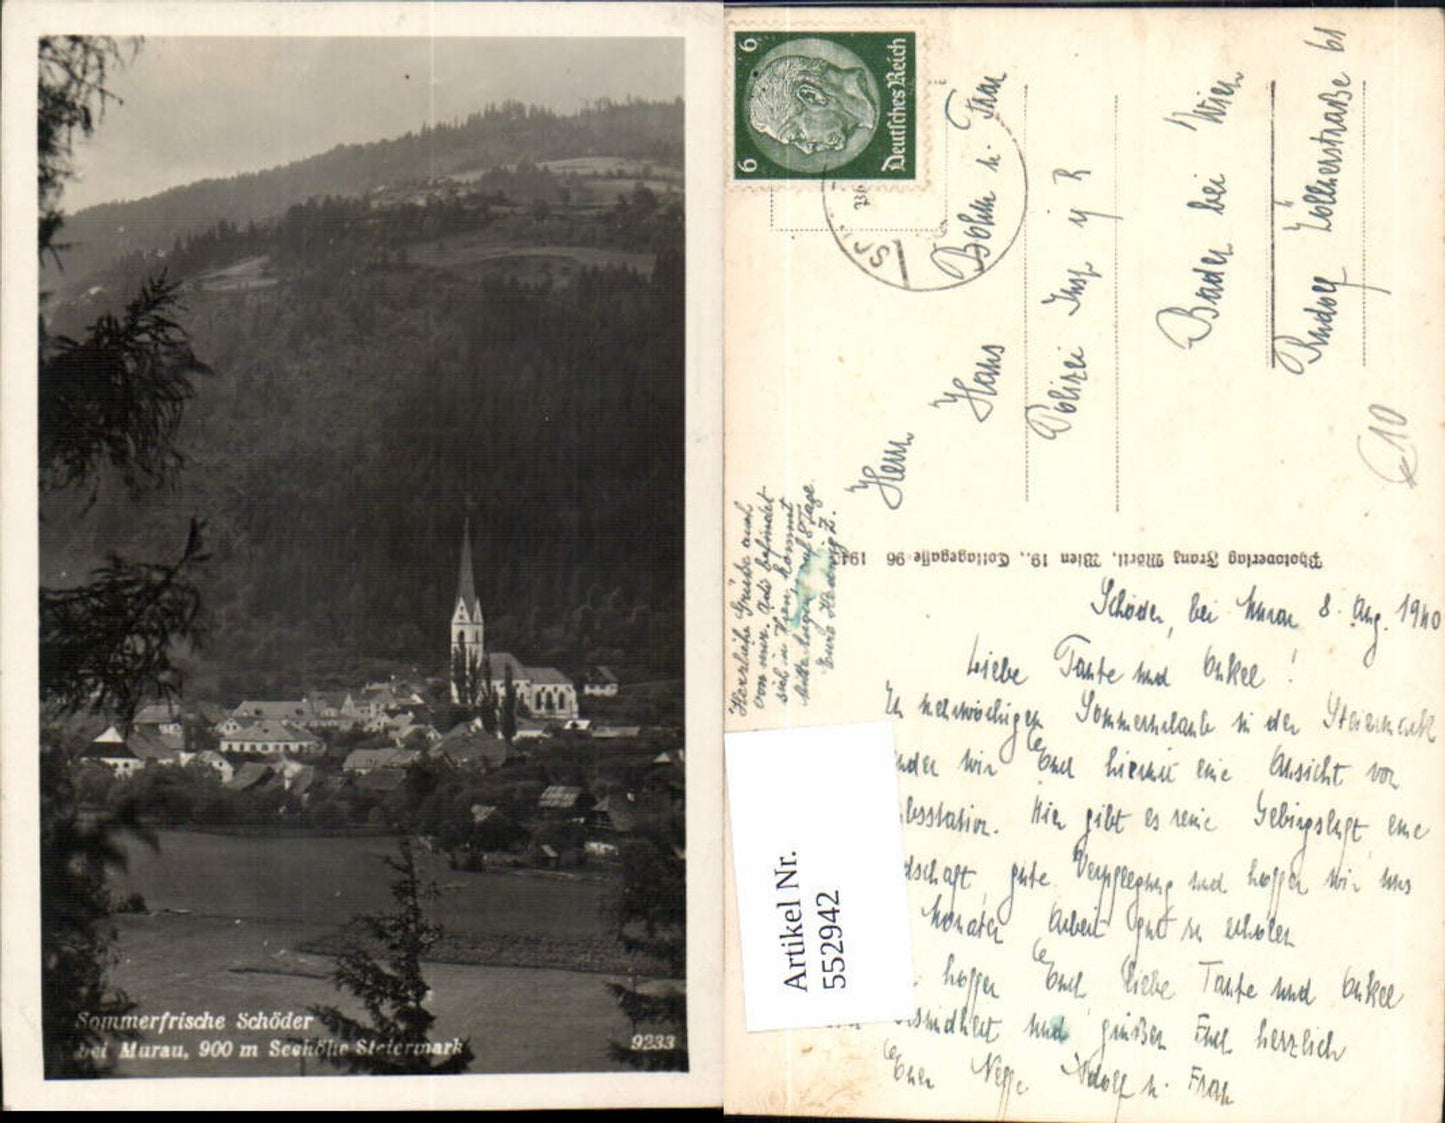 Sommerfrische Schöder
bei Murau, 900 m Seehöhe Steiermark
9233
6 6
Deutsches Reich
Herrn
Hans Böhm u. Frau
Polizei Insp i R
Baden bei Wien
Rudolf Zöllnerstraße 61
€ 10
Photoverlag Franz Mörtl, Wien 19., Collagegasse 96 1940
Herzliche Grüße auch
von mir. befindet
sich in kommt
bitte auf 8 Tage
Eure Hedwig Z.
Schöder, bei Murau 8. Aug. 1940
Liebe Tante und Onkel!
Sommerurlaub in der Steiermark
wir Euch hiermit eine Ansicht von
Hier gibt es reine Gebirgsluft, eine
gute Verpflegung und hoffen wir uns
Monaten Arbeit gut zu erholen
hoffen Euch liebe Tante und Onkel
und grüßen Euch herzlich
Euer Neffe Adolf u. Frau
Artikel Nr.
552942